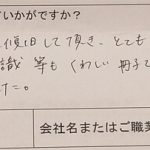 いかがですか？
復旧して頂き、とても
識等もくわしい冊子で
した。
会社名またはご職業